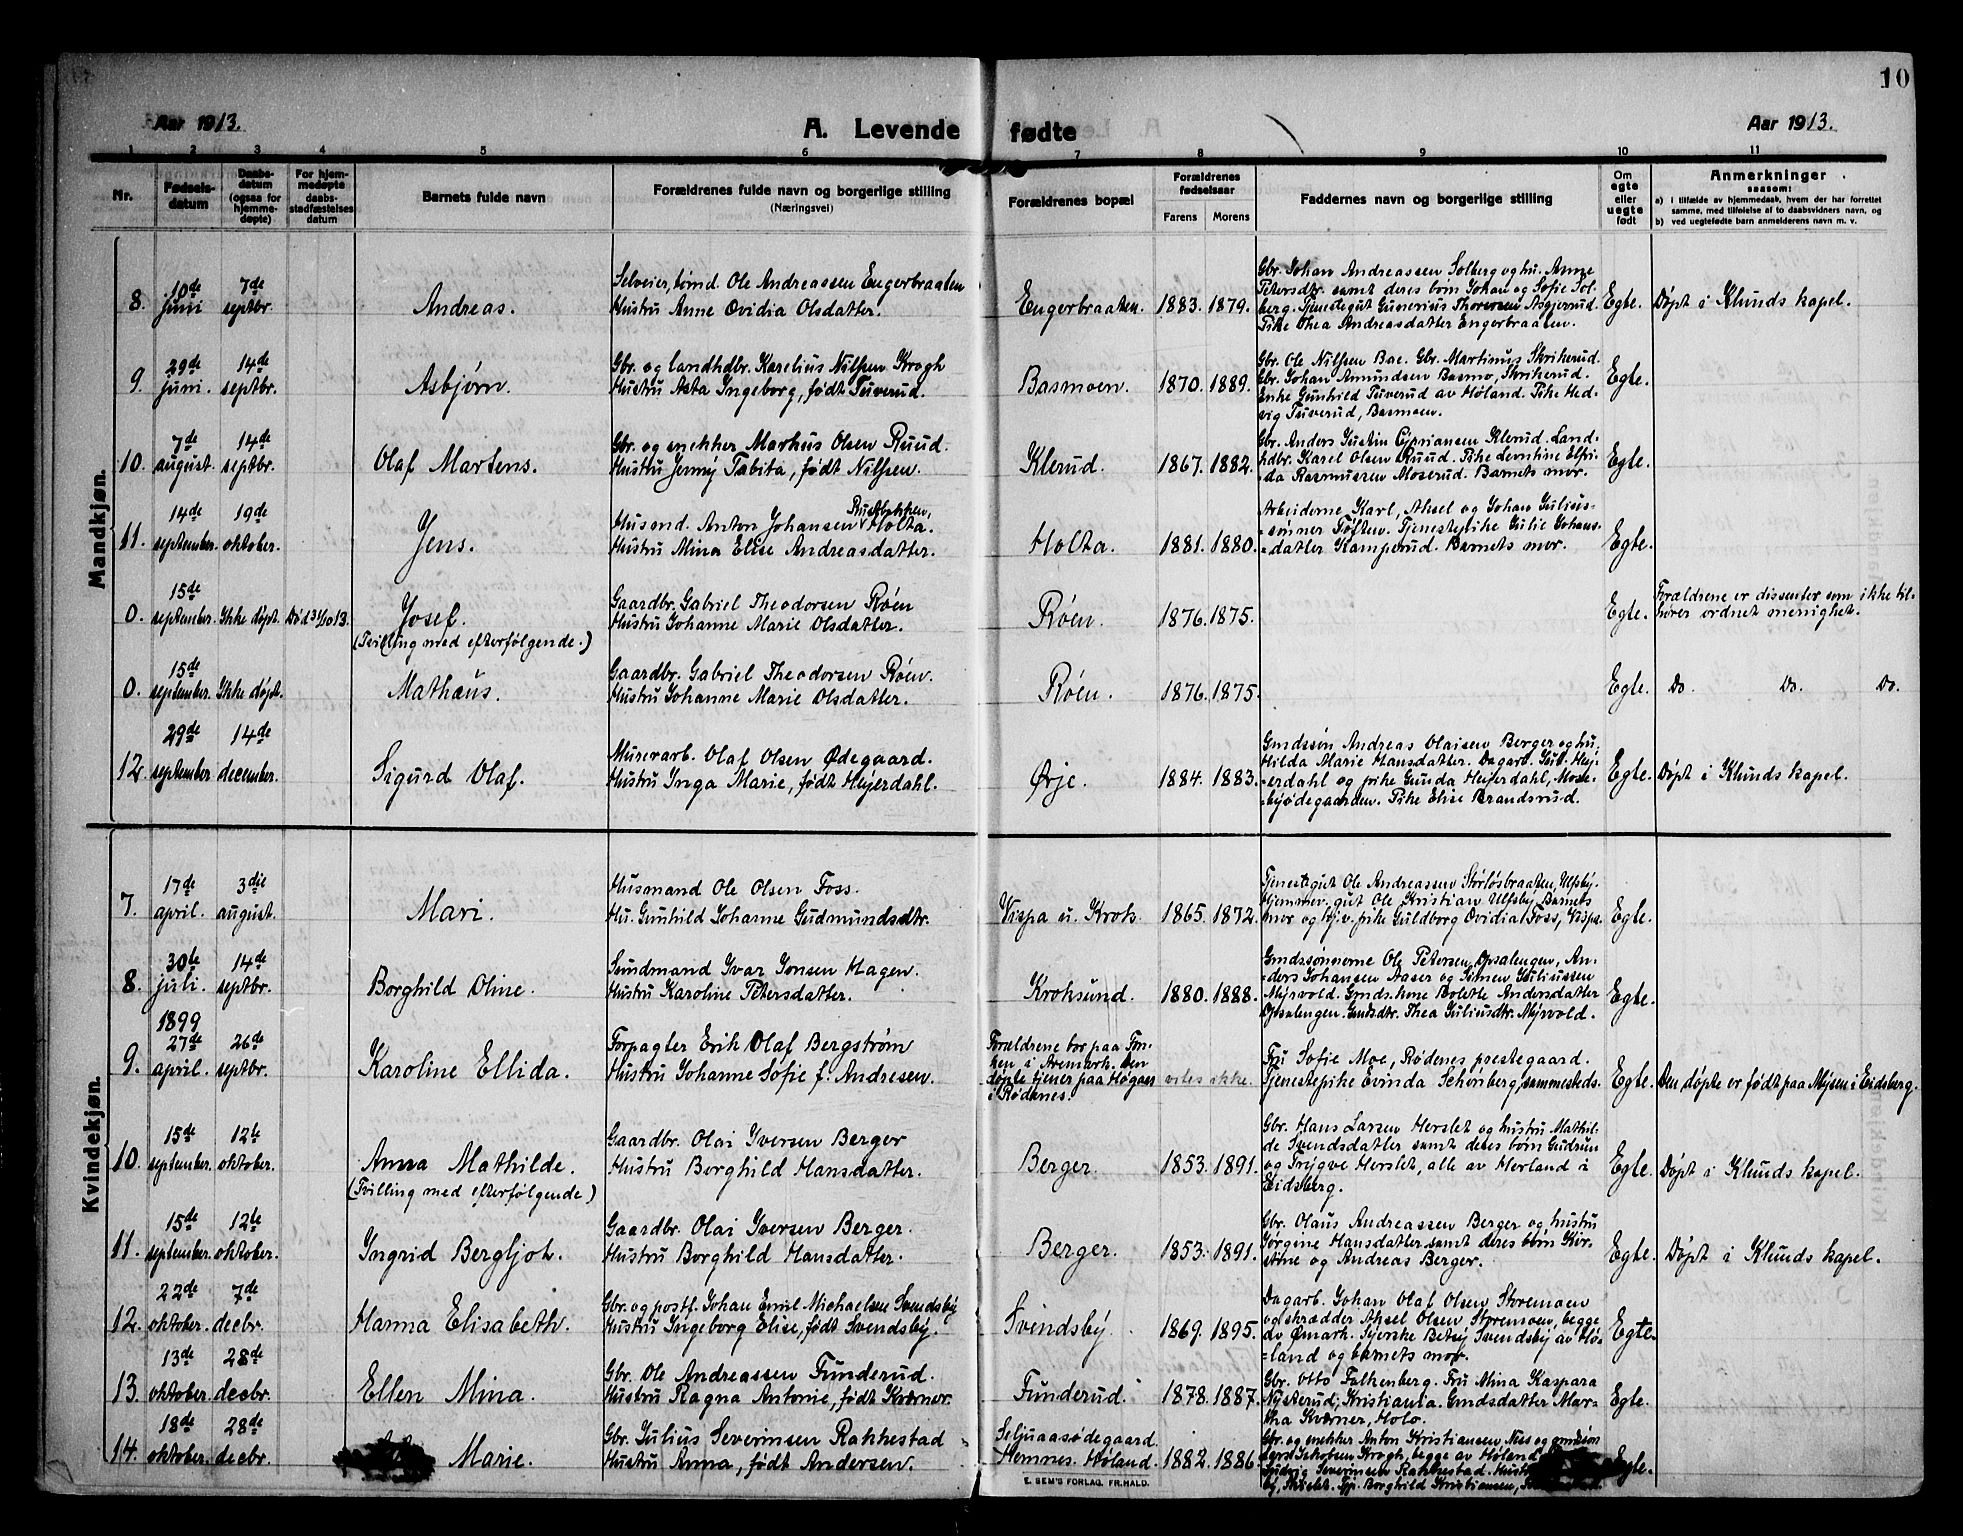 10
Aar 1913.
A. Levende fødte
Aar 1913.
1 2 3 4 5 6 7 8 9 10 11
Nr.
Fødsels-
datum
Daabs-
datum
(ogsaa for
hjemme-
døpte)
For hjem-
medøpte
daabs-
stadfæstelses
datum
Barnets fulde navn
Forældrenes fulde navn og borgerlige stilling
(Næringsvei)
Forældrenes bopæl
Forældrenes
fødselsaar
Farens Morens
Faddernes navn og borgerlige stilling
Om
egte
eller
uegte
født
Anmerkninger
saasom:
a) i tilfælde av hjemmedaab, hvem der har forrettet
samme, med tilføielse af to daabsvidners navn, og
b) ved uegtefødte barn anmelderens navn m. v.
Mandkjøn.
8.
10de
juni
7de
septbr.
Andreas.
Selveier, tømd. Ole Andreassen Engerbraaten
Hustru Anne Ovidia Olsdatter.
Engerbraaten.
1883. 1879.
Gbr. Johan Andreassen Solberg og hu. Anne
Petersdtr. samt deres børn Johan og Sofie Sol-
berg. Tjenestegut Gunerius Thoresen Asgjerud.
Pike Thea Andreasdatter Engerbraaten.
Egte.
Døpt i Klunds kapel.
9.
29de
juni.
14de
septbr.
Asbjørn.
Gbr. og landhdbr. Karelius Nilsen Krogh
Hustru Asta Ingeborg, født Tuverud.
Basmoen.
1870. 1889.
Gbr. Ole Nilssen Bae. Gbr. Martinus Skrikerud.
Gbr. Johan Amundsen Basmo, Skrikerud.
Enke Gunhild Tuverud av Høland. Pike Hed-
vig Tuverud, Basmoen.
Egte.
10.
7de
august.
14de
septbr.
Olaf Martens.
Gbr. og snekker Markus Olsen Ruud.
Hustru Jenny Tabita, født Nilsen.
Klerud.
1867. 1882.
Gbr. Anders Justin Cyprianssen Klerud. Land-
hdbr. Karel Olsen Ruud. Pike Leontine Elfri-
da Rasmussen Moserud. Barnets mor.
Egte.
11.
14de
september.
19de
oktober.
Jens.
Rusbakken,
Husmd. Anton Johansen Holta.
Hustru Mina Elise Andreasdatter.
Holta.
1881. 1880.
Arbeiderne Karl, Aksel og Johan Julius-
sønner Tøften. Tjenestepike Julie Johans-
=datter Kamperud. Barnets mor.
Egte.
0.
15de
september.
Ikke døpt.
Død 31/10 13.
Josef.
(Tvilling med efterfølgende.)
Gaardbr. Gabriel Theodorsen Røen
Hustru Johanne Marie Olsdatter.
Røen.
1876. 1875.
Egte.
Forældrene er dissenter som ikke til-
hører ordnet menighet.
0.
15de
september.
Ikke døpt.
Mathæus.
Gaardbr. Gabriel Theodorsen Røen.
Hustru Johanne Marie Olsdatter.
Røen.
1876. 1875.
Egte.
Do. Do. Do.
12.
29de
september
14de
december.
Sigurd Olaf.
Murerarb. Olaf Olsen Ødegaard.
Hustru Inga Marie, født Heyerdahl.
Ørje.
1884. 1883.
Gmdssøn Andreas Olaisen Berger og hu.
Hilda Marie Hansdatter. Dagarb. Gul. Hey-
erdahl og pike Gunda Heyerdahl, Mose-
byødegaarden. Pike Elise Brandsrud.
Egte.
Døpt i Klunds kapel.
Kvindekjøn.
7.
17de
april.
3die
august.
Mari.
Husmand Ole Olsen Foss.
Hu. Gunhild Johanne Gudmundsdtr.
Vispa u. Krok.
1865. 1872.
Tjenestegut Ole Andreassen Storløsbraaten, Ulfsby.
Hjemmev. gut Ole Kristian Ulfsby. Barnets
mor og hjv. pike Guldborg Ovidia Foss, Vispa.
Egte.
8.
30te
juli.
14de
septbr.
Borghild Oline.
Sundmand Ivar Jonsen Hagen.
Hustru Karoline Petersdatter.
Kroksund.
1880. 1888.
Gmdssønnerne Ole Petersen Opsalengen, An-
ders Johansen Aaser og Simen Juliussen
Myrvold. Gmds.kone Bolette Andersdatter
Opsalengen. Gmdsdtr. Thea Juliusdtr. Myrvold.
Egte.
9.
1899
27de
april.
26de
septbr.
Karoline Ellida.
Forpagter Erik Olaf Bergstrøm
Hustru Johanne Sofie f. Andresen.
Forældrene bor paa Fos-
ken i Aremark. Den
døpte tjener paa Høgaas
i Rødenes.
vites ikke.
Fru Sofie Moe, Rødenes prestegaard.
Tjenestepike Evinda Schønberg, sammesteds.
Egte.
Den døpte er født paa Mysen i Eidsberg.
10.
15de
september.
12te
oktober.
Anna Mathilde.
(Tvilling med efterfølgende.)
Gaardbr. Olai Iversen Berger
Hustru Borghild Hansdatter.
Berger.
1853. 1891.
Gbr. Hans Larsen Herslet og hustru Mathil-
de Svendsdatter samt deres børn Gudrun
og Trygve Herslet, alle av Herland i
Eidsberg.
Egte.
Døpt i Klunds kapel.
11.
15de
september.
12te
oktober.
Ingrid Bergljot.
Gaardbr. Olai Iversen Berger.
Hustru Borghild Hansdatter.
Berger.
1853. 1891.
Gbr. Olaus Andreassen Berger og hustru
Jørgine Hansdatter samt deres børn Kir-
stine og Andreas Berger.
Egte.
Døpt i Klunds kapel.
12.
22de
oktober.
7de
decbr.
Hanna Elisabeth.
Gbr. og postf. Johan Emil Michaelsen Svendsby
Hustru Ingeborg Elise, født Svendsby.
Svendsby.
1869. 1895.
Dagarb. Johan Olaf Olsen Storemoen
og skrædder Aksel Olsen Storemoen, begge
av Ømark. Syerske Betsy Svendsby av Hø-
=land og barnets mor.
Egte.
13.
13de
oktober.
28de
decbr.
Ellen Mina.
Gbr. Ole Andreassen Funderud.
Hustru Ragna Antonie, født Kværner.
Funderud.
1878. 1887.
Gbr. Otto Falkenberg. Fru Mina Kaspara
Nysterud, Kristiania. Gmdsdatter Mar-
tha Kværner, Holo.
Egte.
14.
18de
oktober.
28de
decbr.
Marie.
Gbr. Julius Severinsen Rakkestad
Hustru Anna, født Andersen.
Seljuaasødegaard.
Hemnes. Høland.
1882. 1886.
Gbr. og snekker Anton Kristiansen Ness og gmdssøn
Jakobsen Krogh, begge av Høland
Ludvig Severinsen Rakkestad.
Borghild Kristiansen,
Egte.
E. SEM'S FORLAG. FR.HALD.